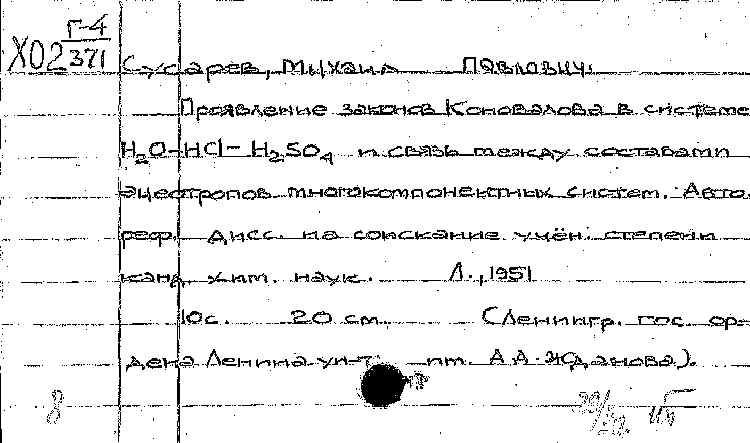 Г-4
Х02 371
Сусарев, Михаил Павлович.
Проявление законов Коновалова в системе
H2O-HCl-H2SO4 и связь между составами
ацеотропов многокомпонентных систем. Авто-
реф. дисс. на соискание учён. степени
канд. хим. наук. Л., 1951
10с. 20 см. (Ленингр. гос. ор-
дена Ленина ун-т им. А.А. Жданова).
8